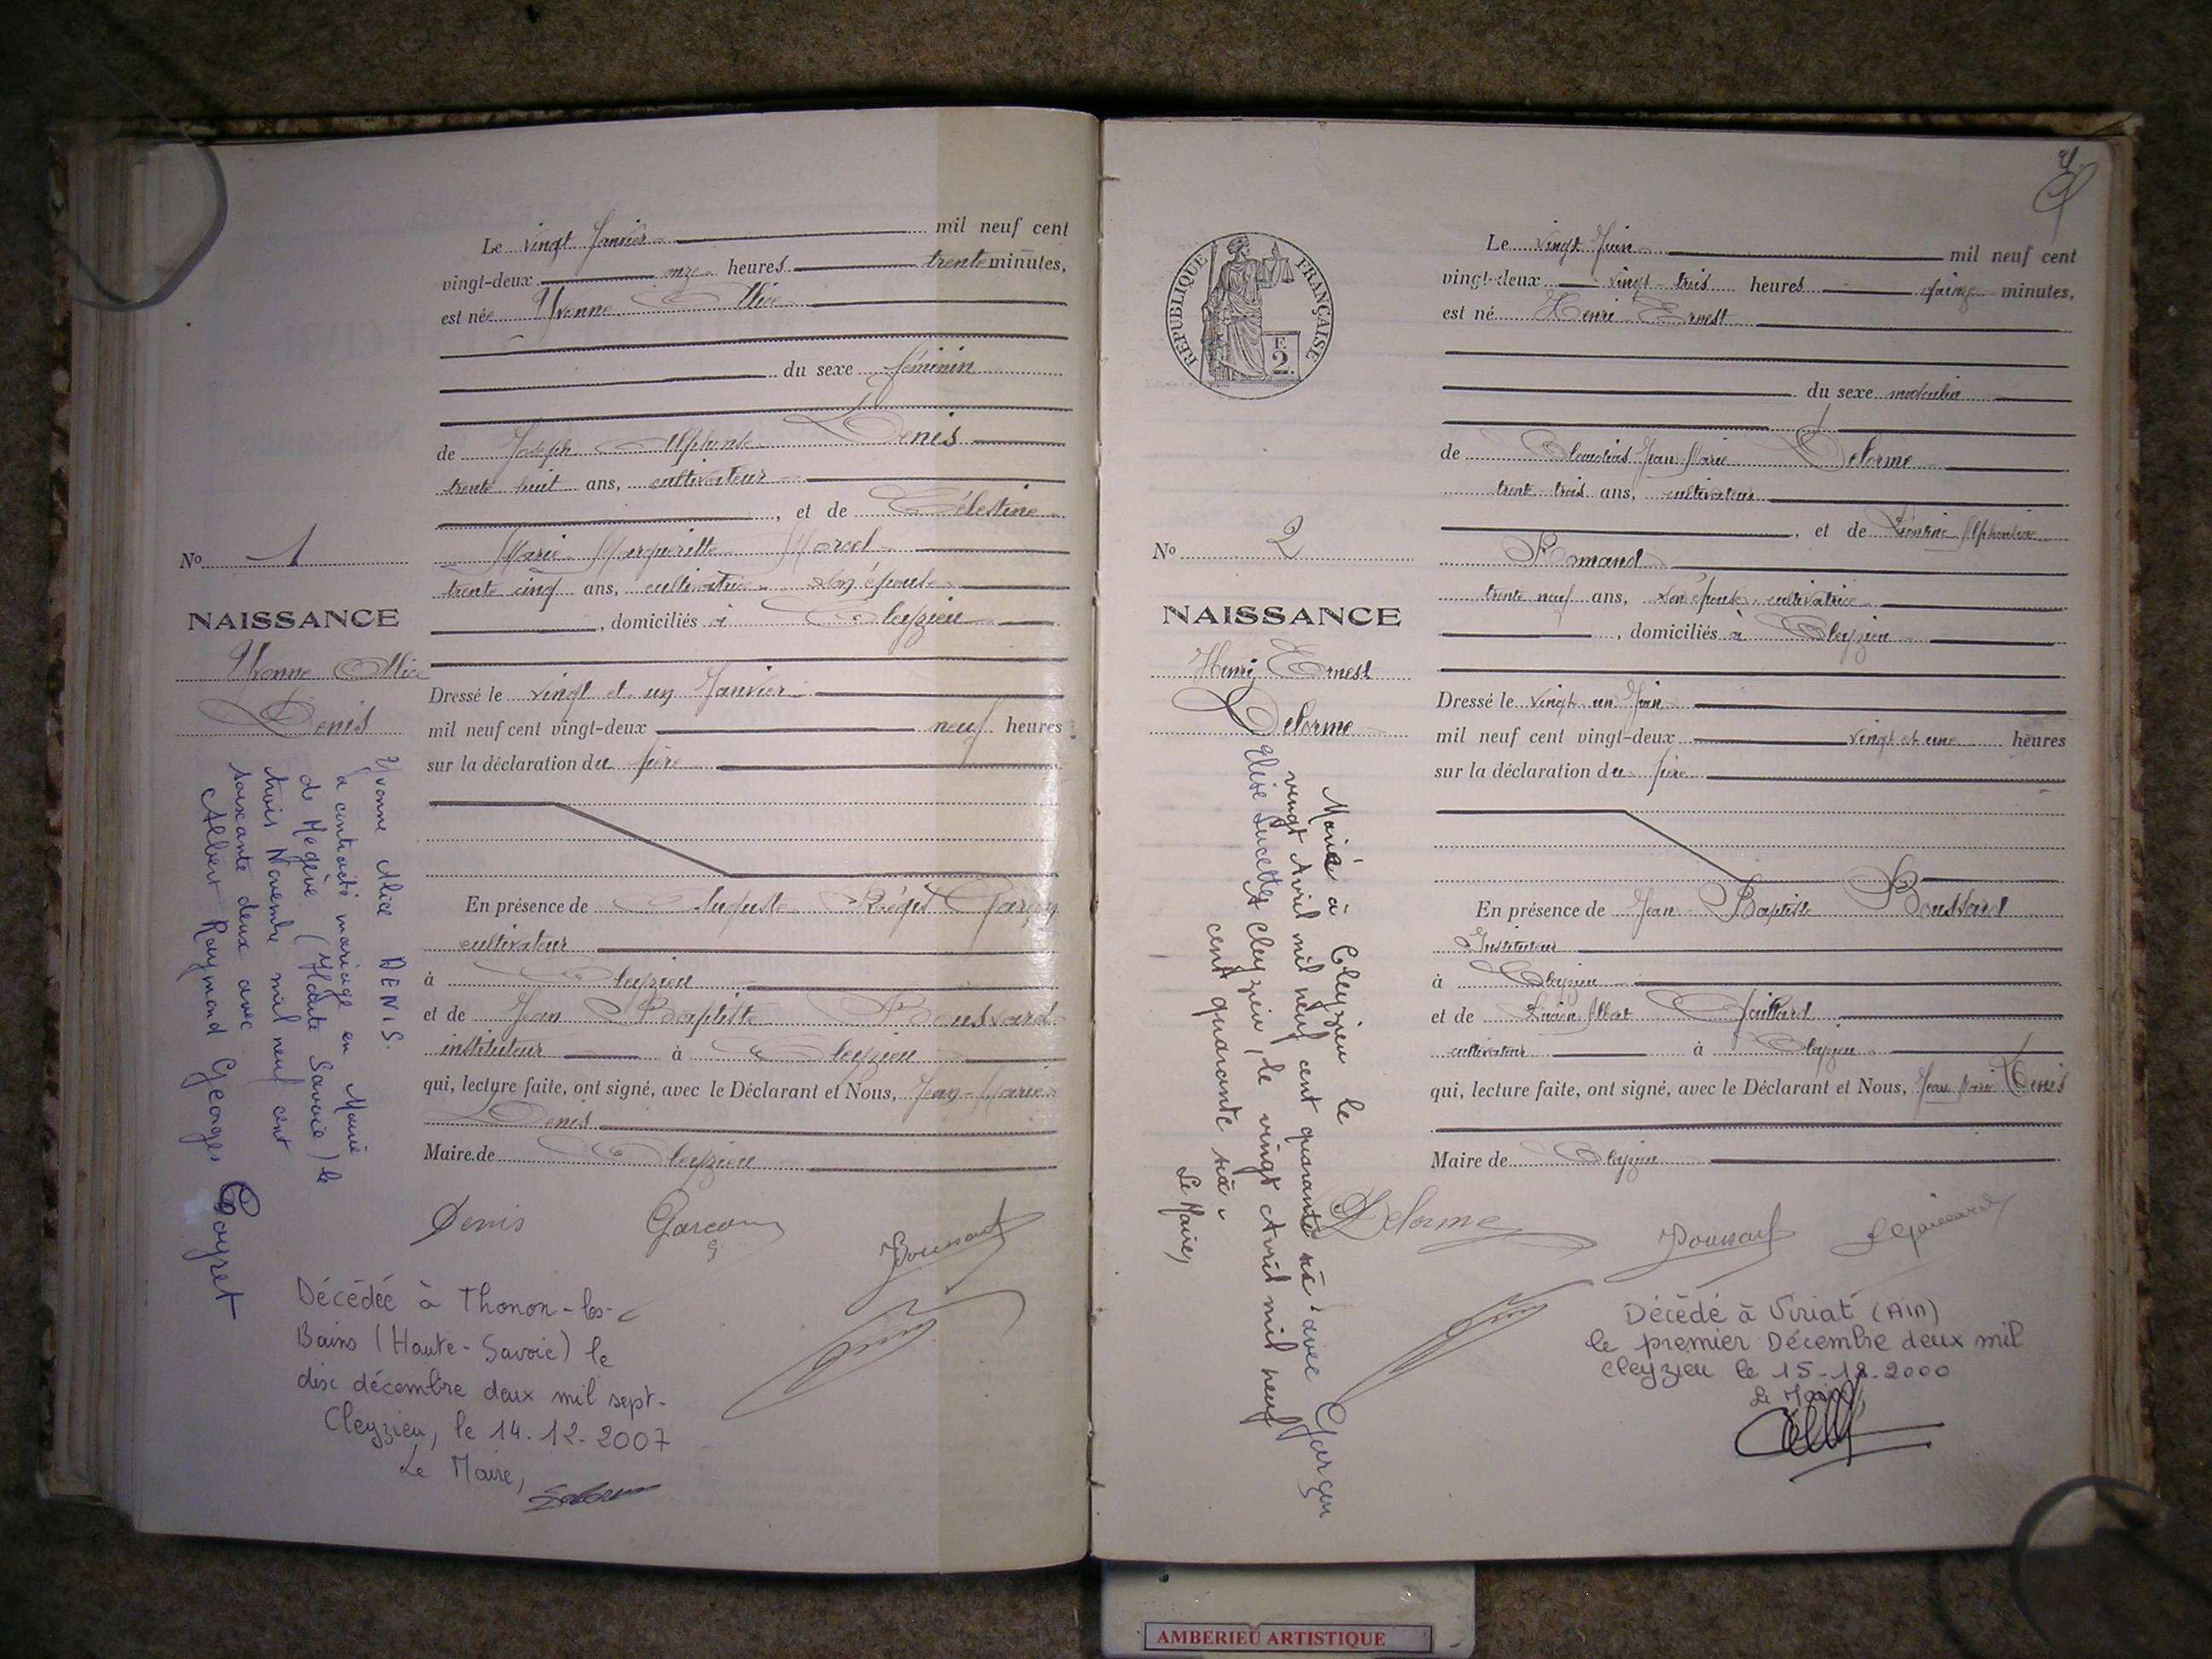 Le vingt Janvier mil neuf cent
vingt-deux onze heures trente minutes,
est née Yvonne Alice
du sexe féminin
de Joseph Alphonse Denis
trente huit ans, cultivateur
, et de Célestine
Marie Marguerite Morel
trente cinq ans, cultivatrice son épouse
, domiciliés à Cleyzieu
No 1
NAISSANCE
Yvonne Alice
Denis
Dressé le vingt et un Janvier
mil neuf cent vingt-deux neuf heures
sur la déclaration du père
En présence de Auguste Régis Garçon
cultivateur
à Cleyzieu
et de Jean Baptiste Boussard
instituteur à Cleyzieu
qui, lecture faite, ont signé, avec le Déclarant et Nous, Jean-Marie
Denis
Maire de Cleyzieu
Yvonne Alice DENIS.
a contracté mariage en Mairie
de Megève (Haute Savoie) le
trois Novembre mil neuf cent
soixante deux avec
Albert Raymond Georges Couyset
Denis Garçon Boussard
Décédée à Thonon-les-
Bains (Haute-Savoie) le
dix décembre deux mil sept.
Cleyzieu, le 14.12.2007
Le Maire,
REPUBLIQUE FRANÇAISE
F.
2.
Le vingt Juin mil neuf cent
vingt-deux vingt-trois heures quinze minutes,
est né Henri Ernest
du sexe masculin
de Claudius Jean Marie Delorme
trente-trois ans, cultivateur
, et de Léontine Alphonsine
Romand
trente neuf ans, son épouse, cultivatrice
, domiciliés à Cleyzieu
No 2
NAISSANCE
Henri Ernest
Delorme
Dressé le vingt un Juin
mil neuf cent vingt-deux vingt et une heures
sur la déclaration du père
En présence de Jean Baptiste Boussard
Instituteur
à Cleyzieu
et de Lucien Albert Gaillard
cultivateur à Cleyzieu
qui, lecture faite, ont signé, avec le Déclarant et Nous, Jean Marie Denis
Maire de Cleyzieu
Marié à Cleyzieu le
vingt Avril mil neuf cent quarante six avec Garçon
Elise Lucette Cleyzieu, le vingt Avril mil neuf
cent quarante six
Le Maire,
Delorme Boussard L Gaillard
Décédé à Viriat (Ain)
le premier Décembre deux mil
Cleyzieu le 15-12-2000
Le Maire
AMBERIEU ARTISTIQUE